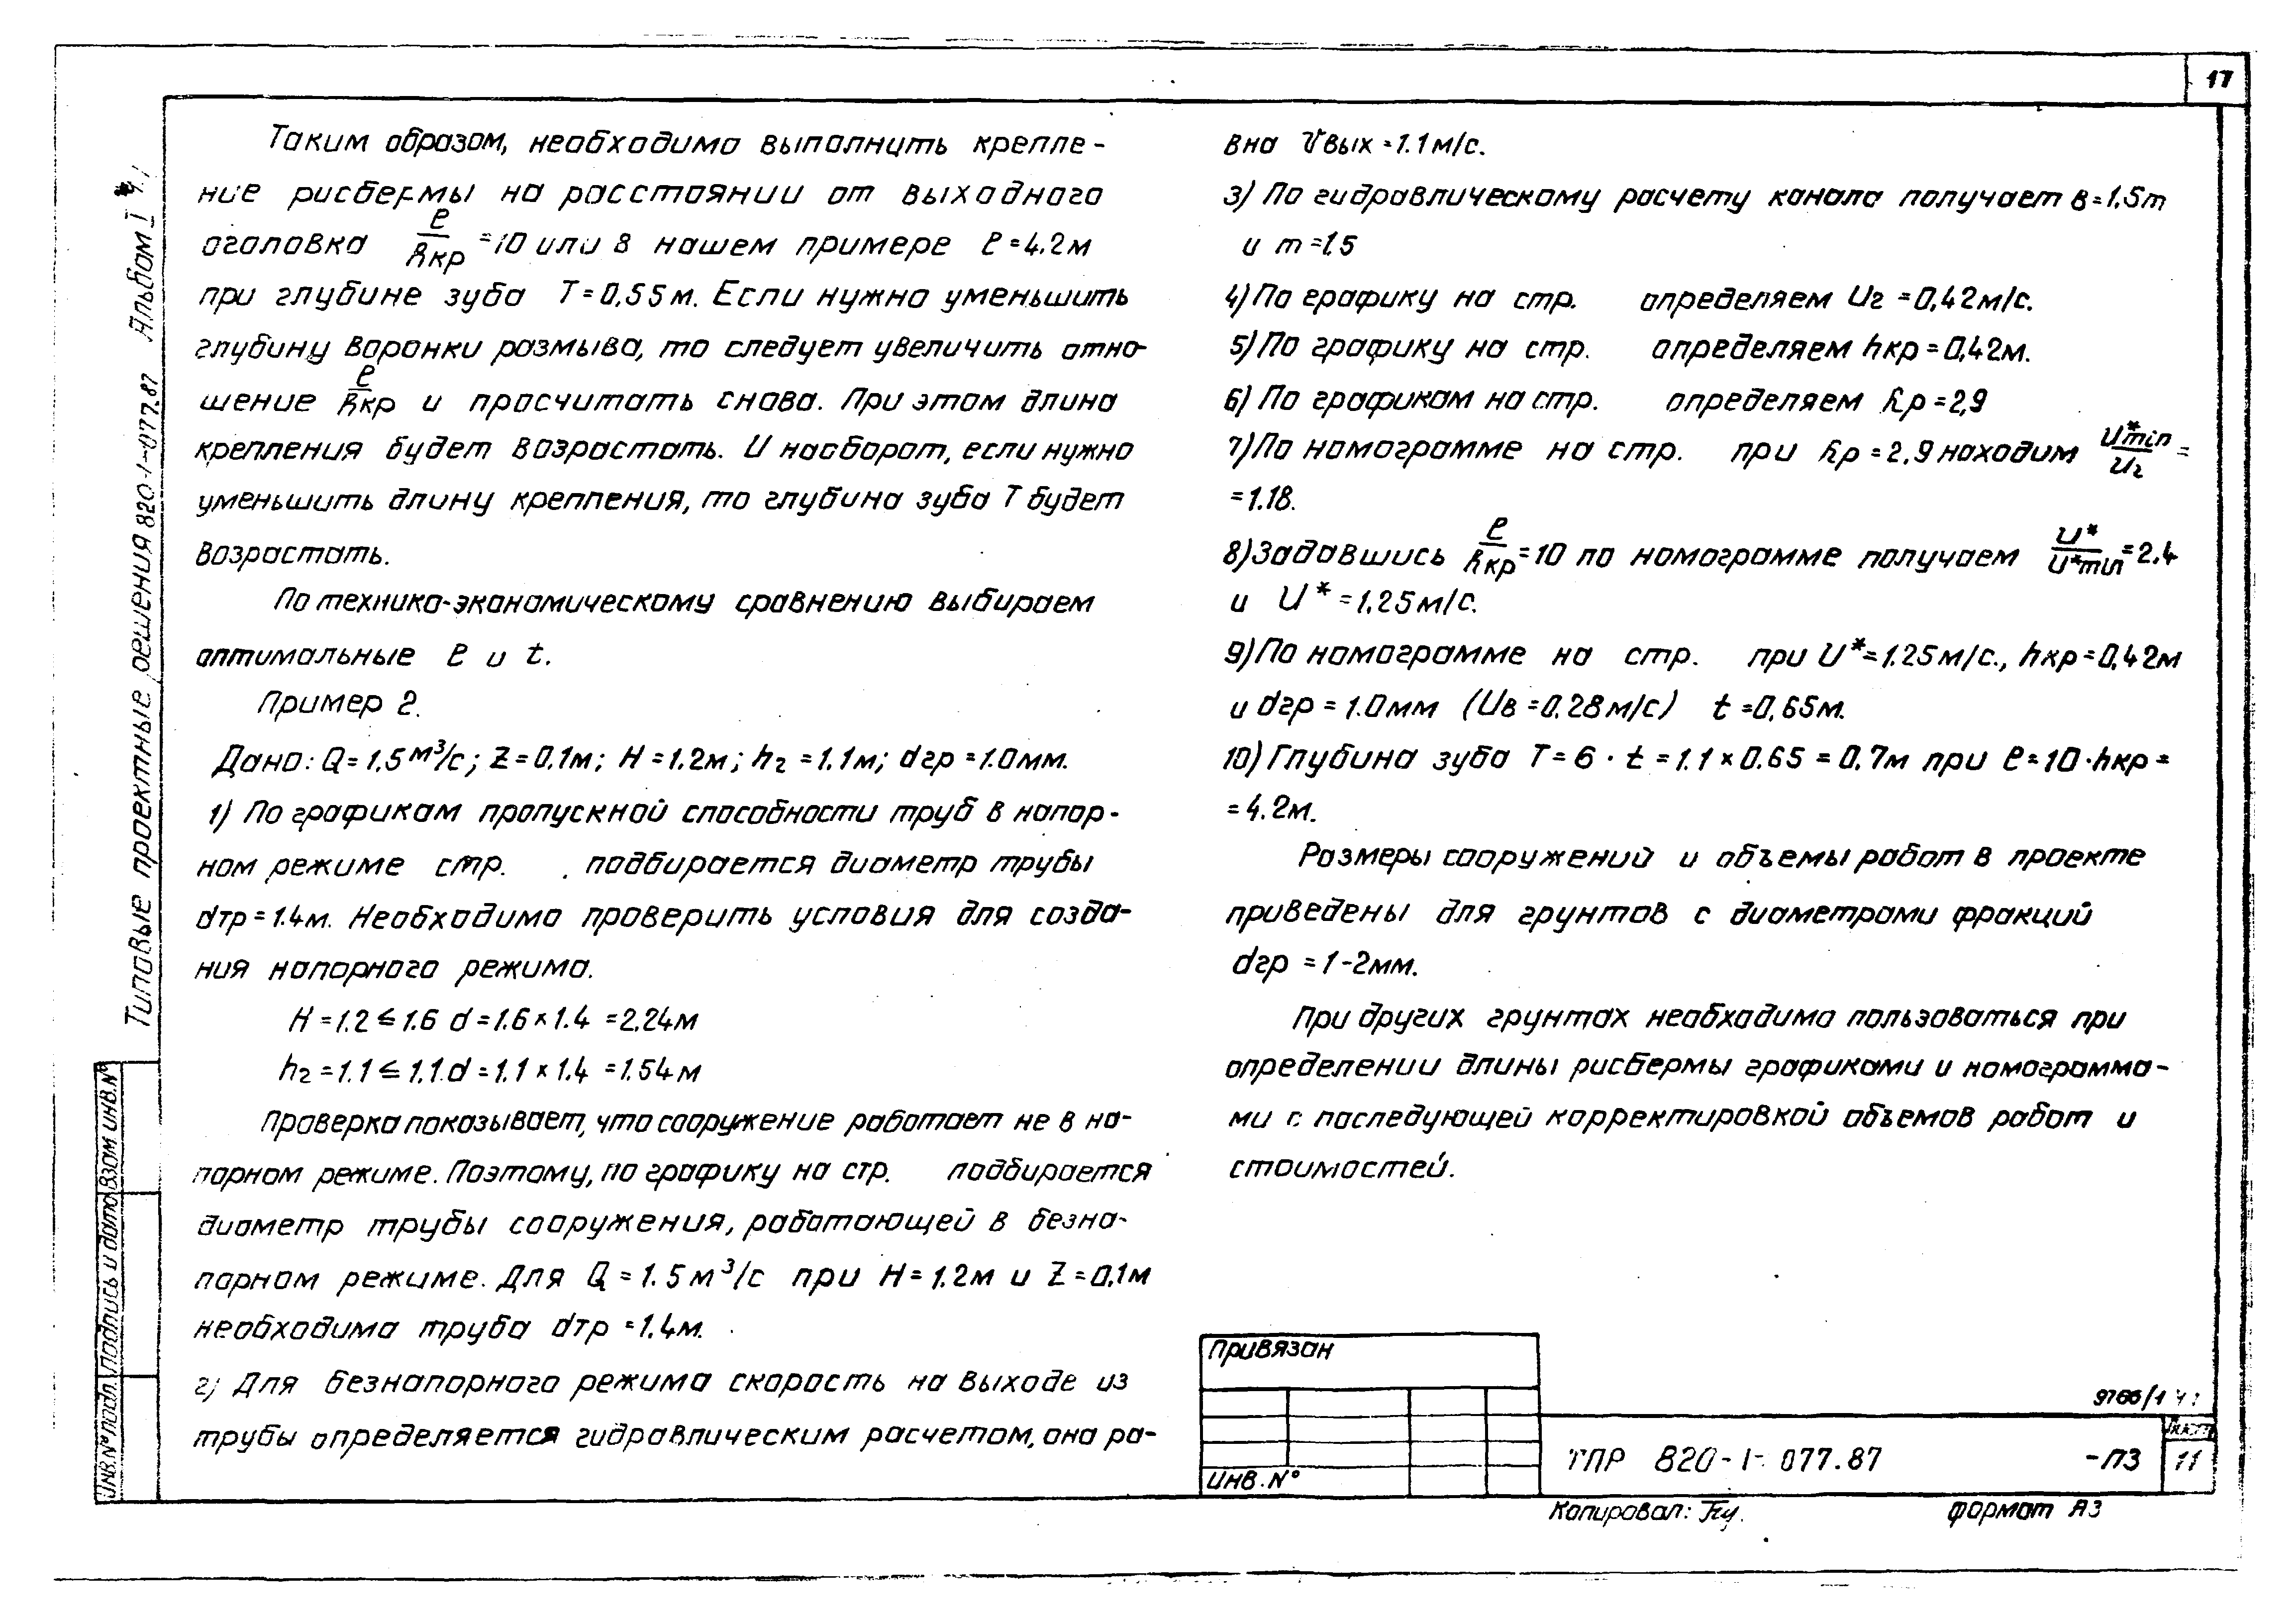 17
Таким образом, необходимо выполнить крепле-
ние рисбермы на расстоянии от выходного
оголовка l/hкр =10 или в нашем примере l=4.2м
при глубине зуба T=0,55м. Если нужно уменьшить
глубину воронки размыва, то следует увеличить отно-
шение l/hкр и просчитать снова. При этом длина
крепления будет возрастать. И наоборот, если нужно
уменьшить длину крепления, то глубина зуба T будет
возрастать.
По технико-экономическому сравнению выбираем
оптимальные l и t.
Пример 2.
Дано: Q=1,5 м³/с; Z=0.1м; H=1.2м; h₂=1.1м; dгр=1.0мм.
1) По графикам пропускной способности труб в напор-
ном режиме стр. подбирается диаметр трубы
dтр=1.4м. Необходимо проверить условия для созда-
ния напорного режима.
H=1.2 ≤ 1.6 d=1.6×1.4=2.24м
h₂=1.1 ≤ 1.1.d=1.1×1.4=1.54м
Проверка показывает, что сооружение работает не в на-
порном режиме. Поэтому, по графику на стр. подбирается
диаметр трубы сооружения, работающей в безна-
порном режиме. Для Q=1.5м³/с при H=1.2м и Z=0,1м
необходима труба dтр=1.4м.
2) Для безнапорного режима скорость на выходе из
трубы определяется гидравлическим расчетом, она ра-
вна Vвых=1.1м/с.
3) По гидравлическому расчету канала получает в=1,5m
и m=1.5
4) По графику на стр. определяем U₂=0,42м/с.
5) По графику на стр. определяем hкр=0,42м.
6) По графикам на стр. определяем hр=2,9
7) По номограмме на стр. при hр=2,9 находим U*min/U₂ =
=1.18.
8) Задавшись l/hкр=10 по номограмме получаем U*/U*min=2,4
и U*=1,25м/с.
9) По номограмме на стр. при U*=1.25м/с., hкр=0,42м
и dгр=1.0мм (Uв=0.28м/с) t=0,65м.
10) Глубина зуба T=б·t=1.1×0.65=0,7м при l=10·hкр=
=4.2м.
Размеры сооружений и объемы работ в проекте
приведены для грунтов с диаметрами фракций
dгр=1-2мм.
При других грунтах необходимо пользоваться при
определении длины рисбермы графиками и номограмма-
ми с последующей корректировкой объемов работ и
стоимостей.
Типовые проектные решения 820-1-077.87 Альбом I ч.1
Инв.№ подл. Подпись и дата Взам инв.№
Привязан
Инв.№
9766/1
ТПР 820-1-077.87 -ПЗ
Лист
11
Копировал:
формат А3